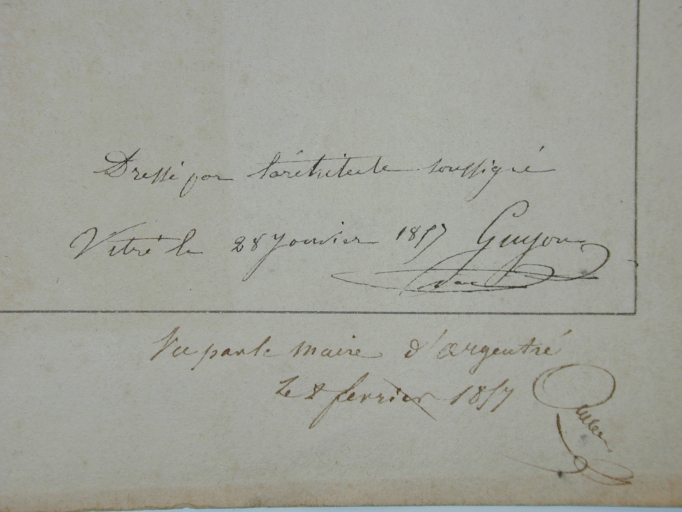 Dressé par l'architecte soussigné
Vitré le 28 Janvier 1857 Guyon
Vu par le maire d'argentré
Le 8 fevrier 1857